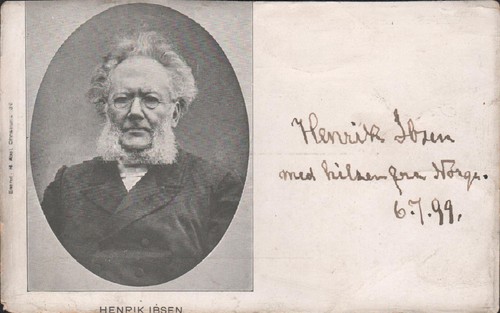 Henrik Ibsen
med hilsen fra Norge.
6.7.99.
HENRIK IBSEN